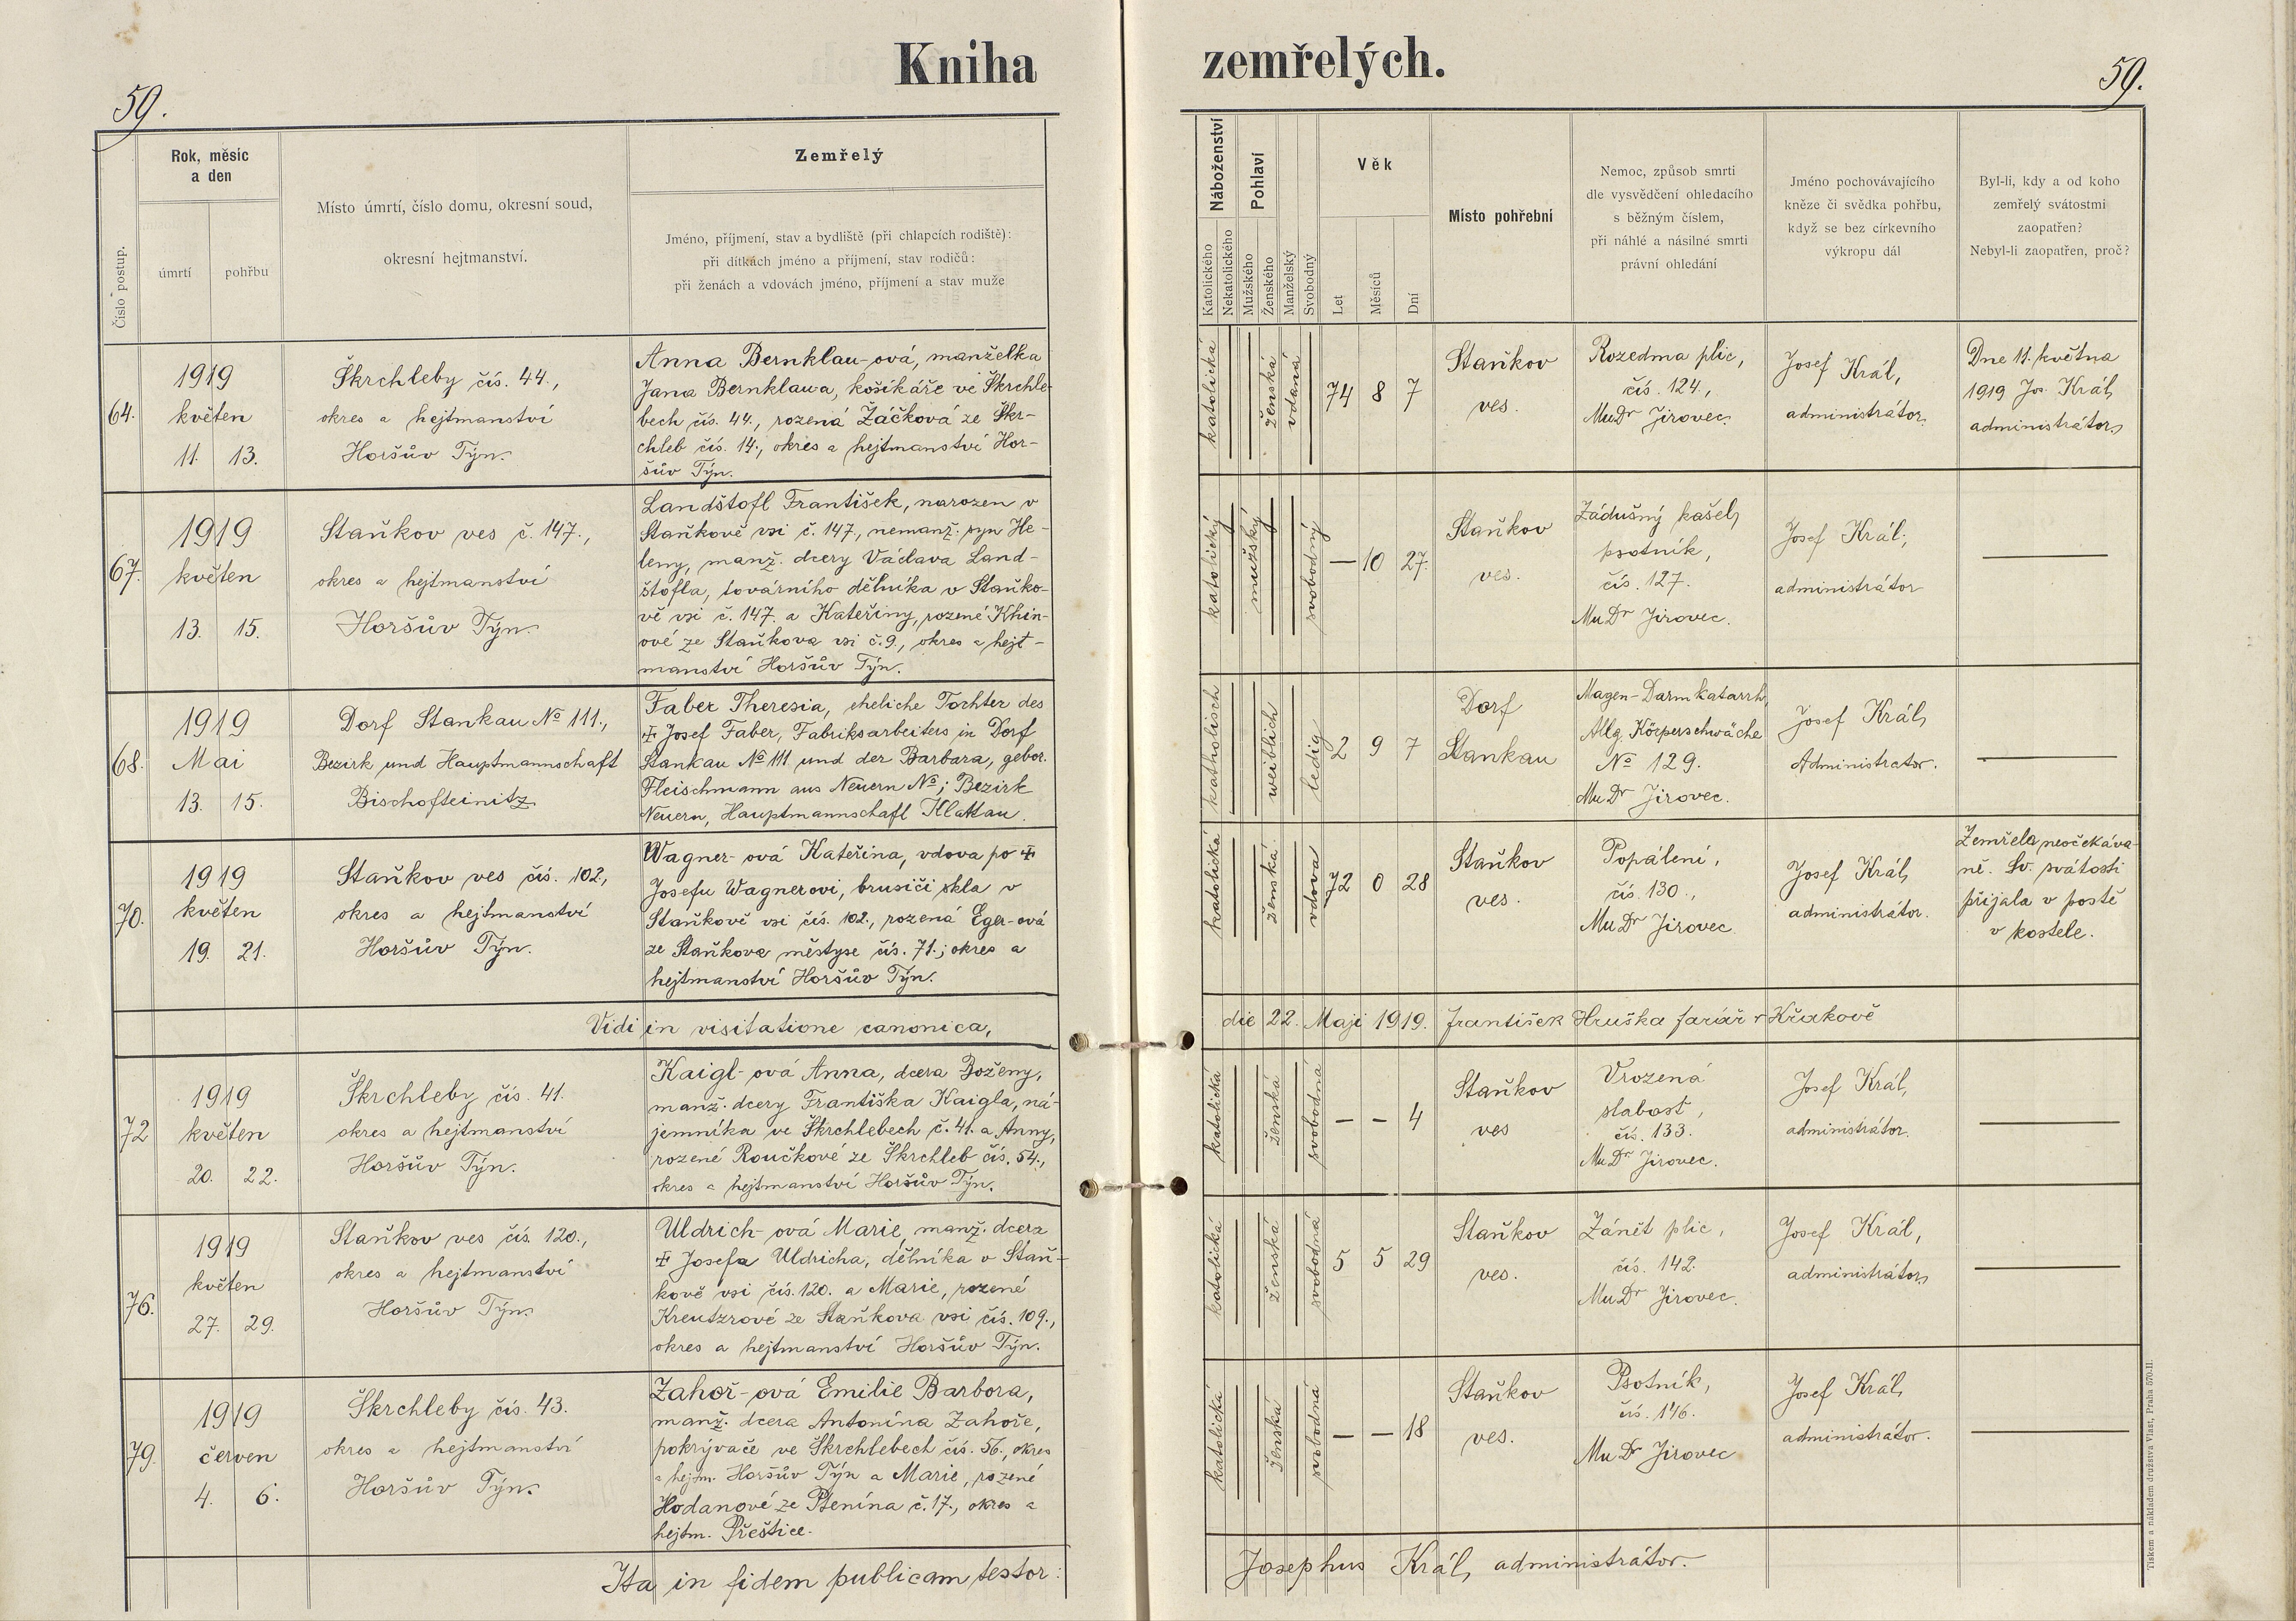 Kniha zemřelých.
59.
59.
Číslo postup.
Rok, měsíc
a den
úmrtí
pohřbu
Místo úmrtí, číslo domu, okresní soud,
okresní hejtmanství.
Zemřelý
Jméno, příjmení, stav a bydliště (při chlapcích rodiště):
při dítkách jméno a příjmení, stav rodičů:
při ženách a vdovách jméno, příjmení a stav muže
Náboženství
Katolického
Nekatolického
Pohlaví
Mužského
Ženského
Manželský
Svobodný
Věk
Let
Měsíců
Dní
Místo pohřební
Nemoc, způsob smrti
dle vysvědčení ohledacího
s běžným číslem,
při náhlé a násilné smrti
právní ohledání
Jméno pochovávajícího
kněze či svědka pohřbu,
když se bez církevního
výkropu dál
Byl-li, kdy a od koho
zemřelý svátostmi
zaopatřen?
Nebyl-li zaopatřen, proč?
64.
1919
květen
11. 13.
Škrchleby čís. 44.,
okres a hejtmanství
Horšův Týn.
Anna Bernklau-ová, manželka
Jana Bernklaua, košíkáře ve Škrchle-
bech čís. 44., rozená Žáčková ze Škr-
chleb čís. 14., okres a hejtmanství Hor-
šův Týn.
katolická
ženská
vdaná
74 8 7
Staňkov
ves.
Rozedma plic,
čís. 124.,
MuDr Jirovec.
Josef Král,
administrátor.
Dne 11. května
1919 Jos. Král,
administrátor.
67.
1919
květen
13. 15.
Staňkov ves č. 147.,
okres a hejtmanství
Horšův Týn.
Landštofl František, narozen v
Staňkově vsi č. 147., nemanž. syn He-
leny, manž. dcery Václava Land-
štofla, továrního dělníka v Staňko-
vě vsi č. 147. a Kateřiny, rozené Khin-
ové ze Staňkova vsi č. 9., okres a hejt-
manství Horšův Týn.
katolický
mužský
svobodný
— 10 27.
Staňkov
ves.
Zádušný kašel,
psotník,
čís. 127.
MuDr Jirovec.
Josef Král,
administrátor
68.
1919
Mai
13. 15.
Dorf Stankau No 111.,
Bezirk und Hauptmannschaft
Bischofteinitz
Faber Theresia, eheliche Tochter des
‡ Josef Faber, Fabriksarbeiters in Dorf
Stankau No 111 und der Barbara, gebor.
Fleischmann aus Neuern No; Bezirk
Neuern, Hauptmannschaft Klattau.
katholisch
weiblich
ledig
2 9 7
Dorf
Stankau
Magen-Darmkatarrh,
Allg. Körperschwäche
No 129.
MuDr Jirovec.
Josef Král,
Administrator.
70.
1919
květen
19. 21.
Staňkov ves čís. 102.,
okres a hejtmanství
Horšův Týn.
Wagner-ová Kateřina, vdova po ‡
Josefu Wagnerovi, brusiči skla v
Staňkově vsi čís. 102., rozená Eger-ová
ze Staňkova městyse čís. 71.; okres a
hejtmanství Horšův Týn.
katolická
ženská
vdova
72 0 28
Staňkov
ves.
Popálení,
čís. 130.,
MuDr Jirovec.
Josef Král,
administrátor.
Zemřela neočekáva-
ně. Sv. svátosti
přijala v postě
v kostele.
Vidi in visitatione canonica, die 22. Maji 1919. František Hruška farář v Křakově
72
1919
květen
20. 22.
Škrchleby čís. 41.
okres a hejtmanství
Horšův Týn.
Kaigl-ová Anna, dcera Boženy,
manž. dcery Františka Kaigla, ná-
jemníka ve Škrchlebech č. 41. a Anny,
rozené Roučkové ze Škrchleb čís. 54.,
okres a hejtmanství Horšův Týn.
katolická
ženská
svobodná
— — 4
Staňkov
ves
Vrozená
slabost,
čís. 133.
MuDr Jirovec.
Josef Král,
administrátor.
76.
1919
květen
27. 29.
Staňkov ves čís. 120.,
okres a hejtmanství
Horšův Týn.
Uldrich-ová Marie, manž. dcera
‡ Josefa Uldricha, dělníka v Staň-
kově vsi čís. 120. a Marie, rozené
Kreutzrové ze Staňkova vsi čís. 109.,
okres a hejtmanství Horšův Týn.
katolická
ženská
svobodná
5 5 29
Staňkov
ves.
Zánět plic,
čís. 142.
MuDr Jirovec.
Josef Král,
administrátor.
79.
1919
červen
4. 6.
Škrchleby čís. 43.
okres a hejtmanství
Horšův Týn.
Zahoř-ová Emilie Barbora,
manž. dcera Antonína Zahoře,
pokrývače ve Škrchlebech čís. 56., okres
a hejtm. Horšův Týn a Marie, rozené
Hodanové ze Ptenína č. 17., okres a
hejtm. Přeštice.
katolická
ženská
svobodná
— — 18
Staňkov
ves.
Psotník,
čís. 146.
MuDr Jirovec
Josef Král,
administrátor.
Ita in fidem publicam testor: Josephus Král, administrátor.
Tiskem a nákladem družstva Vlast, Praha 570-II.